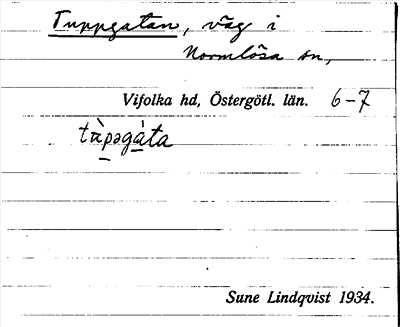 Tuppgatan, väg i
Normlösa sn,
Vifolka hd, Östergötl. län. 6-7
tàpəgáta
Sune Lindqvist 1934.